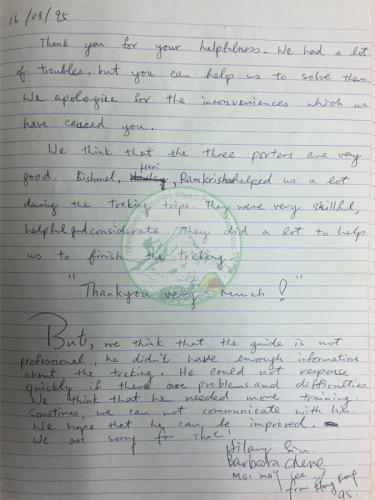 16/08/95
Thank you for your helpfulness. We had a lot
of troubles, but you can help us to solve them.
We apologize for the inconveniences which we
have caused you.
We think that the three porters are very
good. Bishnel, Hari, Ramkrishahelped us a lot
during the treking trips. They were very skillful,
helpful and considerate. They did a lot to help
us to finish the treking.
"Thankyou very much!"
But, we think that the guide is not
professional, he didn't have enough information
about the treking. He could not response
quickly if there are problems and difficulties.
We think that he needed more training.
Sometimes, we can not communicate with him.
We hope that he can be improved.
We are sorry for that!
Barbara Cheng
MEI MAY Lee
from Hong Kong
95.